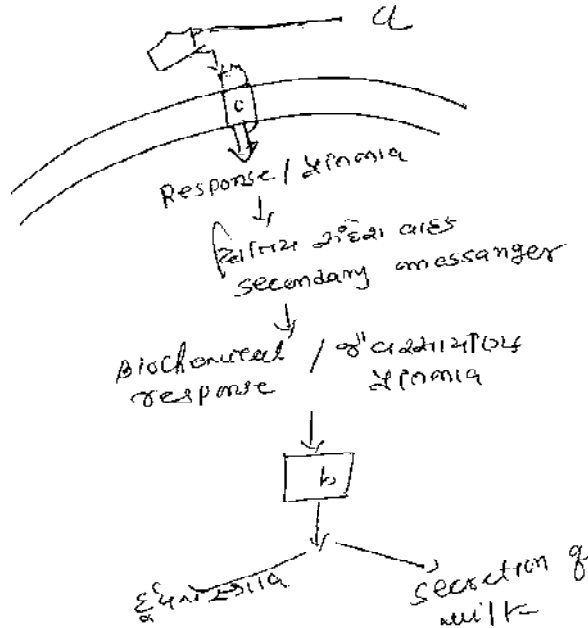 a
c
Response / પ્રતિભાવ
દ્વિતિય સંદેશા વાહક
secondary messanger
Biochemical / જૈવરસાયણિક
response પ્રતિભાવ
b
દૂધનો સ્ત્રાવ
secretion of
milk